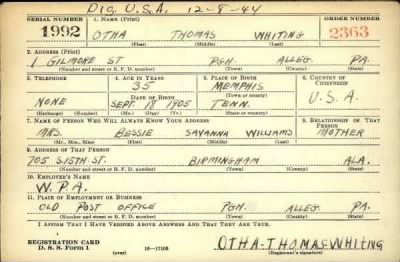 DIS. U.S.A. 12-8-44
SERIAL NUMBER 1. NAME (Print) ORDER NUMBER
1992 OTHA THOMAS WHITING 2363
(First) (Middle) (Last)
2. ADDRESS (Print)
1 GILMORE ST PGH. ALLEG. PA.
(Number and street or R. F. D. number) (Town) (County) (State)
3. TELEPHONE 4. AGE IN YEARS 5. PLACE OF BIRTH 6. COUNTRY OF CITIZENSHIP
35 MEMPHIS
DATE OF BIRTH (Town or county)
NONE SEPT. 18 1905 TENN. U.S.A.
(Exchange) (Number) (Mo.) (Day) (Yr.) (State or country)
7. NAME OF PERSON WHO WILL ALWAYS KNOW YOUR ADDRESS 8. RELATIONSHIP OF THAT PERSON
MRS. BESSIE SAVANNA WILLIAMS MOTHER
(Mr., Mrs., Miss) (First) (Middle) (Last)
9. ADDRESS OF THAT PERSON
705 515TH ST. BIRMINGHAM ALA.
(Number and street or R. F. D. number) (Town) (County) (State)
10. EMPLOYER'S NAME
W.P.A.
11. PLACE OF EMPLOYMENT OR BUSINESS
OLD POST OFFICE PGH. ALLEG. PA.
(Number and street or R. F. D. number) (Town) (County) (State)
I AFFIRM THAT I HAVE VERIFIED ABOVE ANSWERS AND THAT THEY ARE TRUE.
REGISTRATION CARD
D. S. S. Form 1 (over) 16—17105
OTHA-THOMAS-WHITING
(Registrant's signature)